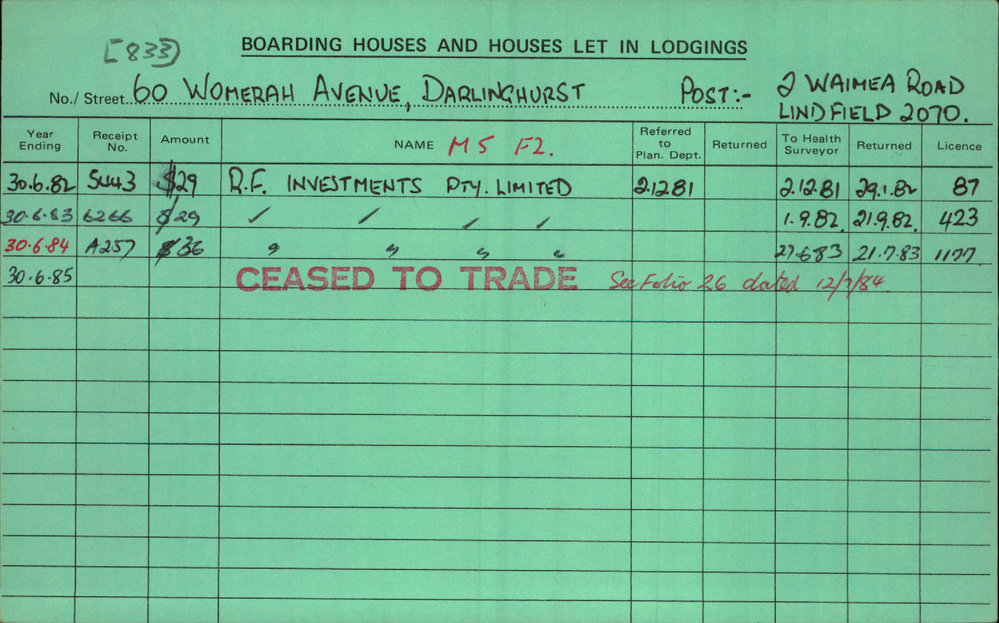 [833]
BOARDING HOUSES AND HOUSES LET IN LODGINGS
No./ Street 60 WOMERAH AVENUE, DARLINGHURST POST:- 2 WAIMEA ROAD
LINDFIELD 2070.
Year Ending Receipt No. Amount NAME M5 F2. Referred to Plan. Dept. Returned To Health Surveyor Returned Licence
30.6.82 5443 $29 R.F. INVESTMENTS PTY. LIMITED 2.12.81 2.12.81 29.1.82 87
30.6.83 6266 $29 ✓ ✓ ✓ ✓ 1.9.82 21.9.82 423
30.6.84 A257 $36 " " " " 27.6.83 21.7.83 1177
30.6.85 CEASED TO TRADE See Folio 26 dated 12/7/84